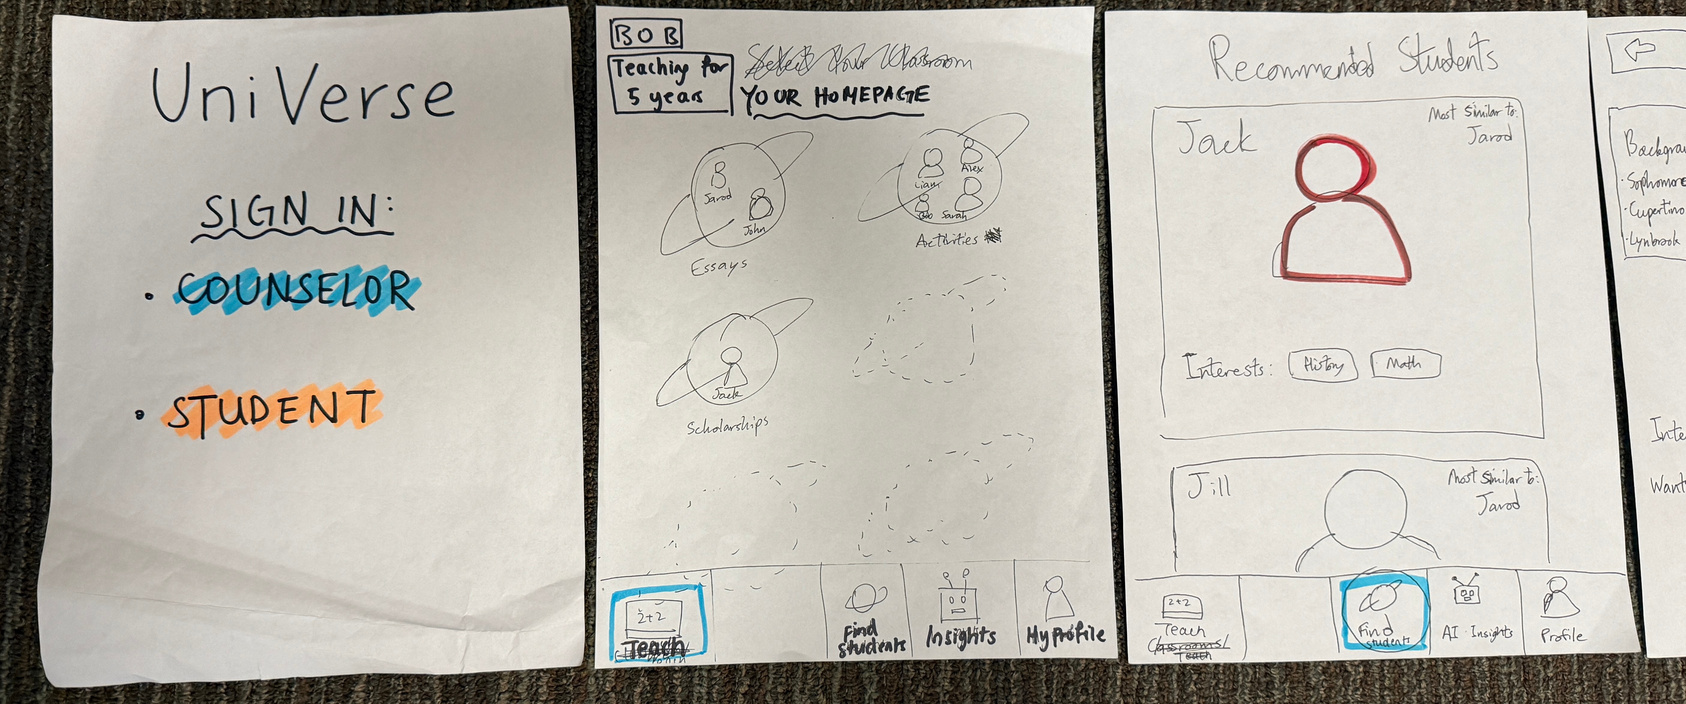 UniVerse
SIGN IN:
• COUNSELOR
• STUDENT
BOB
Teaching for
5 years
Select Your Classroom
YOUR HOMEPAGE
Jarod
John
Essays
Liam
Alex
Bob
Sarah
Activities
Jack
Scholarships
2+2
Teach
Find
Students
Insights
My Profile
Recommended Students
Jack
Most Similar to:
Jarod
Interests:
History
Math
Jill
Most Similar to:
Jarod
2+2
Teach
Classrooms/
Teach
Find
Students
AI Insights
Profile
·Sophomore
·Cupertino
·Lynbrook